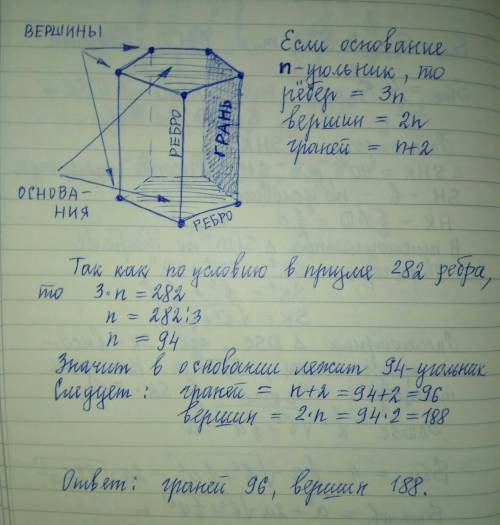 ВЕРШИНЫ
Если основание
n-угольник, то
рёбер = 3n
вершин = 2n
граней = n+2
РЕБРО
ГРАНЬ
ОСНОВА-
НИЯ
РЕБРО
Так как по условию в призме 282 ребра,
то 3·n = 282
n = 282:3
n = 94
Значит в основании лежит 94-угольник
Следует: граней = n+2 = 94+2 = 96
вершин = 2·n = 94·2 = 188
Ответ: граней 96, вершин 188.